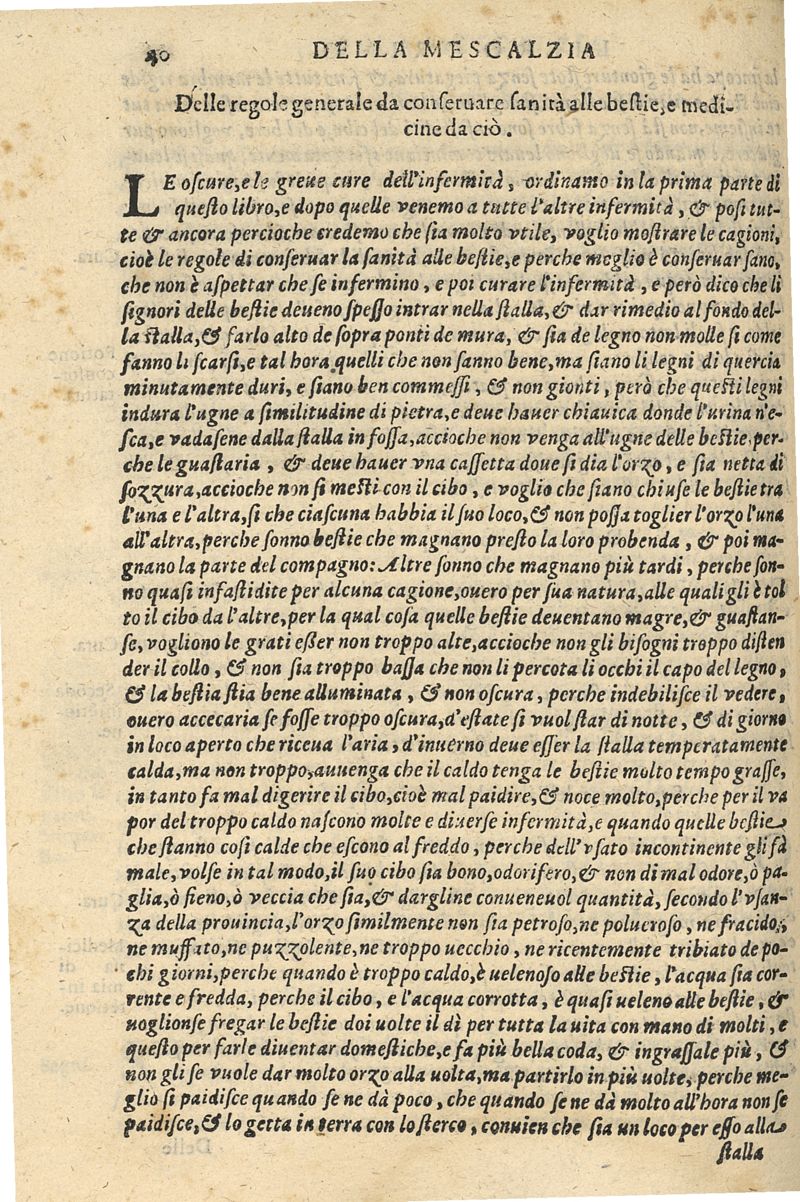 40 DELLA MESCALZIA
Delle regole generale da conseruare sanità alle bestie, e medi-
cine da ciò.
LE oscure, e le greue cure dell'infermità, ordinamo in la prima parte di
questo libro, e dopo quelle venemo a tutte l'altre infermità, & posi tut-
te & ancora percioche credemo che sia molto vtile, voglio mostrare le cagioni,
cioè le regole di conseruar la sanità alle bestie, e perche meglio è conseruar sano,
che non è aspettar che se infermino, e poi curare l'infermità, e però dico che li
signori delle bestie deueno spesso intrar nella stalla, & dar rimedio al fondo del-
la stalla, & farlo alto de sopra ponti de mura, & sia de legno non molle si come
fanno li scarsi, e tal hora quelli che non sanno bene, ma siano li legni di quercia
minutamente duri, e siano ben commessi, & non gionti, però che questi legni
indura l'ugne a similitudine di pietra, e deue hauer chiauica donde l'urina n'e-
sca, e vadasene dalla stalla in fossa, accioche non venga all'ugne delle bestie, per-
che le guastaria, & deue hauer vna cassetta doue si dia l'orzo, e sia netta di
sozzura, accioche non si mesti con il cibo, e voglio che siano chiuse le bestie tra
l'una e l'altra, si che ciascuna habbia il suo loco, & non possa toglier l'orzo l'una
all'altra, perche sonno bestie che magnano presto la loro probenda, & poi ma-
gnano la parte del compagno: Altre sonno che magnano più tardi, perche son-
no quasi infastidite per alcuna cagione, ouero per sua natura, alle quali gli è tol
to il cibo da l'altre, per la qual cosa quelle bestie deuentano magre, & guastan-
se, vogliono le grati esser non troppo alte, accioche non gli bisogni troppo disten
der il collo, & non sia troppo bassa che non li percota li occhi il capo del legno,
& la bestia stia bene alluminata, & non oscura, perche indebilisce il vedere,
ouero accecaria se fosse troppo oscura, d'estate si vuol star di notte, & di giorno
in loco aperto che riceua l'aria, d'inuerno deue esser la stalla temperatamente
calda, ma non troppo, auuenga che il caldo tenga le bestie molto tempo grasse,
in tanto fa mal digerire il cibo, cioè mal paidire, & noce molto, perche per il va
por del troppo caldo nascono molte e diuerse infermità, e quando quelle bestie
che stanno cosi calde che escono al freddo, perche dell'vsato incontinente gli fà
male, volse in tal modo, il suo cibo sia bono, odorifero, & non di mal odore, ò pa-
glia, ò fieno, ò veccia che sia, & dargline conueneuol quantità, secondo l'vsan-
za della prouincia, l'orzo similmente non sia petroso, ne polueroso, ne fracido,
ne muffato, ne puzzolente, ne troppo uecchio, ne ricentemente tribiato de po-
chi giorni, perche quando è troppo caldo, è uelenoso alle bestie, l'acqua sia cor-
rente e fredda, perche il cibo, e l'acqua corrotta, è quasi ueleno alle bestie, &
uoglionse fregar le bestie doi uolte il dì per tutta la uita con mano di molti, e
questo per farle diuentar domestiche, e fa più bella coda, & ingrassale più, &
non gli se vuole dar molto orzo alla uolta, ma partirlo in più uolte, perche me-
glio si paidisce quando se ne dà poco, che quando se ne dà molto all'hora non se
paidisce, & lo getta in terra con lo sterco, conuien che sia un loco per esso alla
stalla